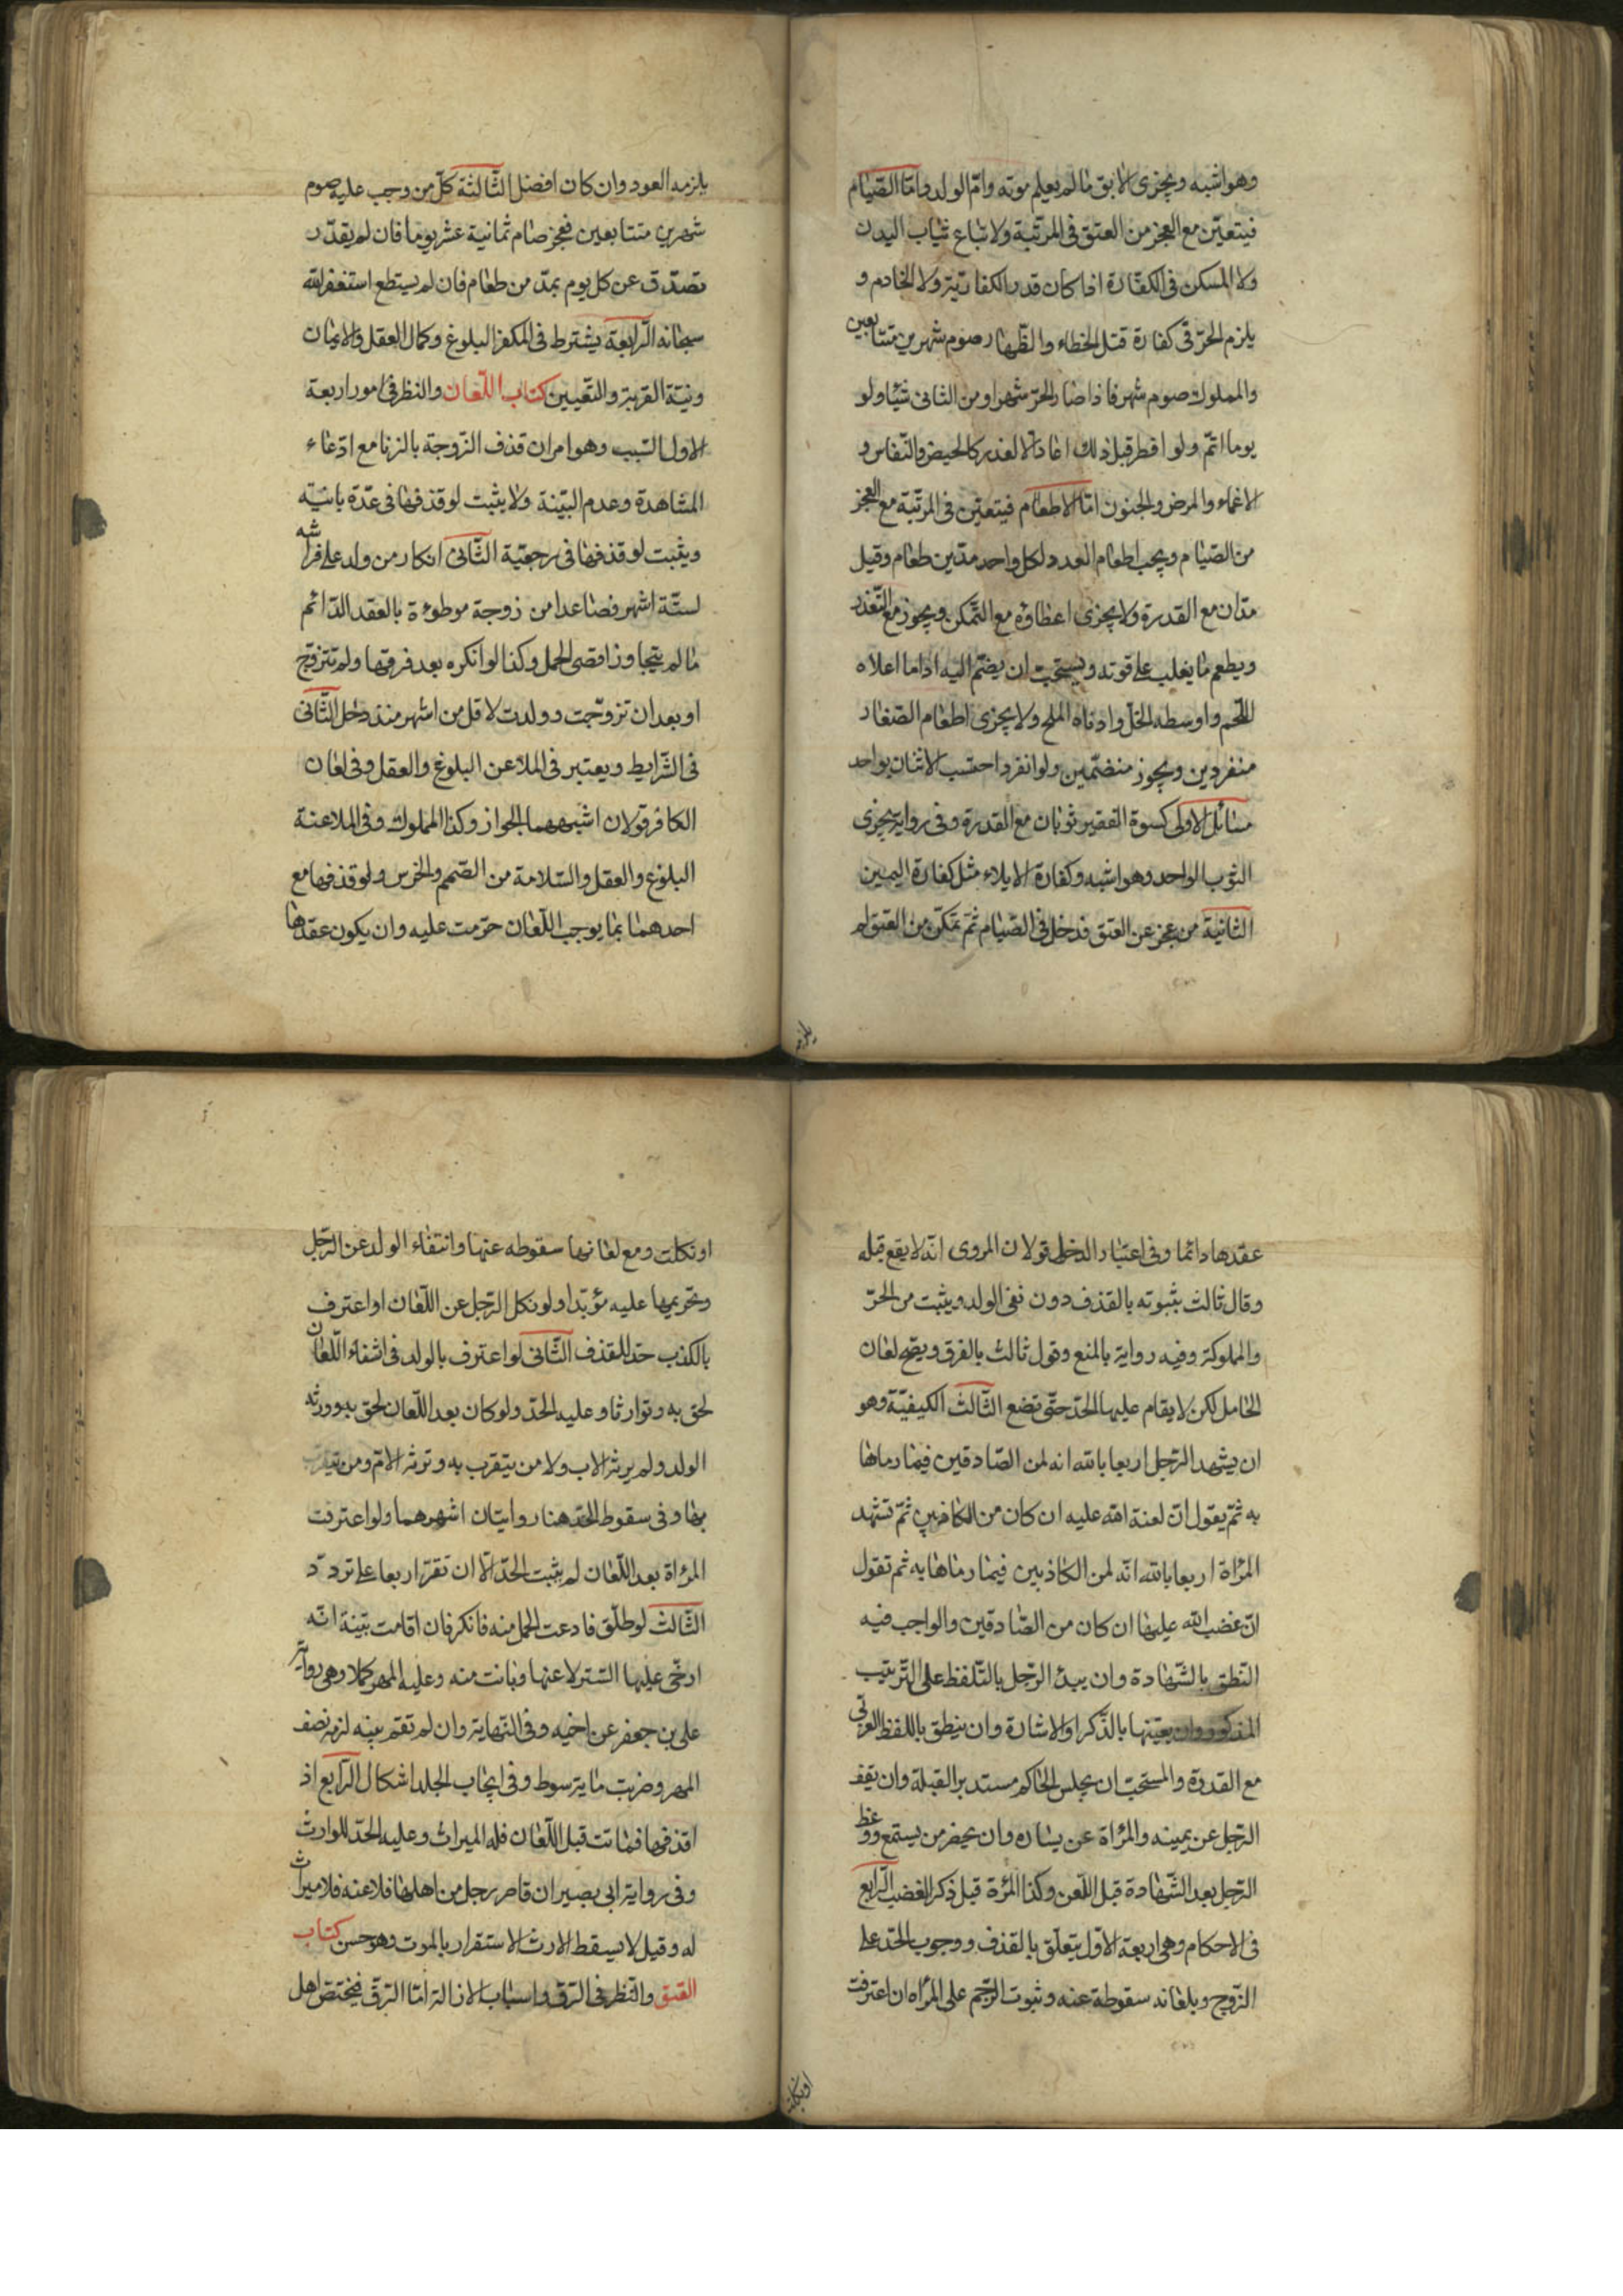 وهو اشبه ويجزى الابق ما لم يعلم موته وامّ الولد وامّا الصّيام
فيتعيّن مع العجز من العتق فى المرتّبة ولا تباع ثياب البدن
ولا المسكن فى الكفّارة اذا كان قدر الكفايته ولا الخادم و
يلزم الحرّ فى كفارة قتل الخطاء والظّهار صوم شهرين متتابعين
والمملوك صوم شهر فاذا صام الحرّ شهرا ومن الثانى شيئا ولو
يوما اتمّ ولو افطر قبل ذلك اعاد الا لعذر كالحيض والنّفاس و
الاغماء والمرض والجنون امّا الاطعام فيتعيّن فى المرتّبة مع العجز
من الصّيام ويجب اطعام العدد لكل واحد مدّ من طعام وقيل
مدّان مع القدرة ولا يجزى اعطاؤه مع التّمكن ويجوز مع التّعذر
ويطعم ما يغلب على قوته ويستحبّ ان يضمّ اليه اداما اعلاه
اللّحم واوسطه الخلّ وادناه الملح ولا يجزى اطعام الصّغار
منفردين ويجوز منضمّين ولو انفردوا احتسب الاثنان بواحد
مسائل الاولى كسوة الفقير ثوبان مع القدرة وفى رواية يجزى
الثوب الواحد وهو اشبه وكفارة الايلاء مثل كفارة اليمين
الثانية من عجز عن العتق فدخل فى الصّيام ثمّ تمكّن من العتق لم
يلزمه
يلزمه العود وان كان افضل الثّالثة كلّ من وجب عليه صوم
شهرين متتابعين فعجز صام ثمانية عشر يوما فان لم يقدر
تصدّق عن كل يوم بمدّ من طعام فان لم يستطع استغفر الله
سبحانه الرّابعة يشترط فى المكفر البلوغ وكمال العقل والايمان
ونيّة القربة والتعيين كتاب اللّعان والنظر فى امور اربعة
الاول السّبب وهو امران قذف الزّوجة بالزنا مع ادّعاء
المشاهدة وعدم البيّنة ولا يثبت لو قذفها فى عدّة بائنة
ويثبت لو قذفها فى رجعيّة الثّانى انكار من ولد على فراشه
لستّة اشهر فصاعدا من زوجة موطوءة بالعقد الدّائم
ما لم يتجاوز اقصى الحمل وكذا لو انكره بعد فرقتها ولم تتزوّج
او بعد ان تزوّجت وولدت لاقل من اشهر منذ دخل الثّانى
فى الشّرايط ويعتبر فى الملاعن البلوغ والعقل وفى لعان
الكافر قولان اشبههما الجواز وكذا المملوك وفى الملاعنة
البلوغ والعقل والسّلامة من الصّمم والخرس ولو قذفها مع
احدهما بما يوجب اللّعان حرّمت عليه وان يكون عقدها
عقدها دائما وفى اعتبار الدخول قولان المروى انّه لا يقع قبله
وقال ثالث بثبوته بالقذف دون نفى الولد ويثبت من الحرّ
والمملوكة وفيه رواية بالمنع وقول ثالث بالفرق ويصح لعان
الحامل لكن لا يقام عليها الحدّ حتّى تضع الثّالث الكيفيّة وهو
ان يشهد الرّجل اربعا بالله انه لمن الصّادقين فيما رماها
به ثمّ يقول انّ لعنة الله عليه ان كان من الكاذبين ثمّ تشهد
المرأة اربعا بالله انّه لمن الكاذبين فيما رماها به ثم تقول
انّ غضب الله عليها ان كان من الصّادقين والواجب فيه
النّطق بالشّهادة وان يبدء الرّجل بالتّلفّظ على التّرتيب
المذكور وان يعيّنها بالذّكر او الاشارة وان ينطق باللفظ العربى
مع القدرة والمستحبّ ان يجلس الحاكم مستدبر القبلة وان يقف
الرّجل عن يمينه والمرأة عن يساره وان يحضر من يستمع ووعظ
الرّجل بعد الشّهادة قبل اللّعن وكذا المرأة قبل ذكر الغضب الرّابع
فى الاحكام وهى اربعة الاوّل يتعلّق بالقذف ووجوب الحدّ على
الزّوج وبلعانه سقوطه عنه وثبوت الرّجم على المرأة ان اعترفت
او نكلت
او نكلت ومع لعانها سقوطه عنها وانتفاء الولد عن الرّجل
وتحريمها عليه مؤبّدا ولو نكل الرّجل عن اللّعان او اعترف
بالكذب حدّ للقذف الثّانى لو اعترف بالولد فى اثناء اللّعان
لحق به وتوارثا وعليه الحدّ ولو كان بعد اللّعان لحق به وورثه
الولد ولم يرثه الاب ولا من يتقرب به وترثه الامّ ومن يتقرّب
بها وفى سقوط الحدّ هنا روايتان اشهرهما ولو اعترفت
المرأة بعد اللّعان لم يثبت الحدّ الّا ان تقرّ اربعا على تردّد
الثّالث لو طلّق فادعت الحمل منه فانكر فان اقامت بيّنة انّه
ارخى عليها السّتر لاعنها وبانت منه وعليه المهر كملا وهى رواية
على بن جعفر عن اخيه وفى النّهاية وان لم تقم بيّنه لزمه نصف
المهر وضربت ماية سوط وفى ايجاب الجلد اشكال الرّابع اذ
اقذفها فماتت قبل اللّعان فله الميراث وعليه الحدّ للوارث
وفى رواية ابى بصير ان قام رجل من اهلها فلاعنه فلا ميراث
له وقيل لا يسقط الارث لاستقرار بالموت وهو حسن كتاب
العتق والنّظر فى الرّقّ واسباب الازالة امّا الرّقّ فيختصّ اهل